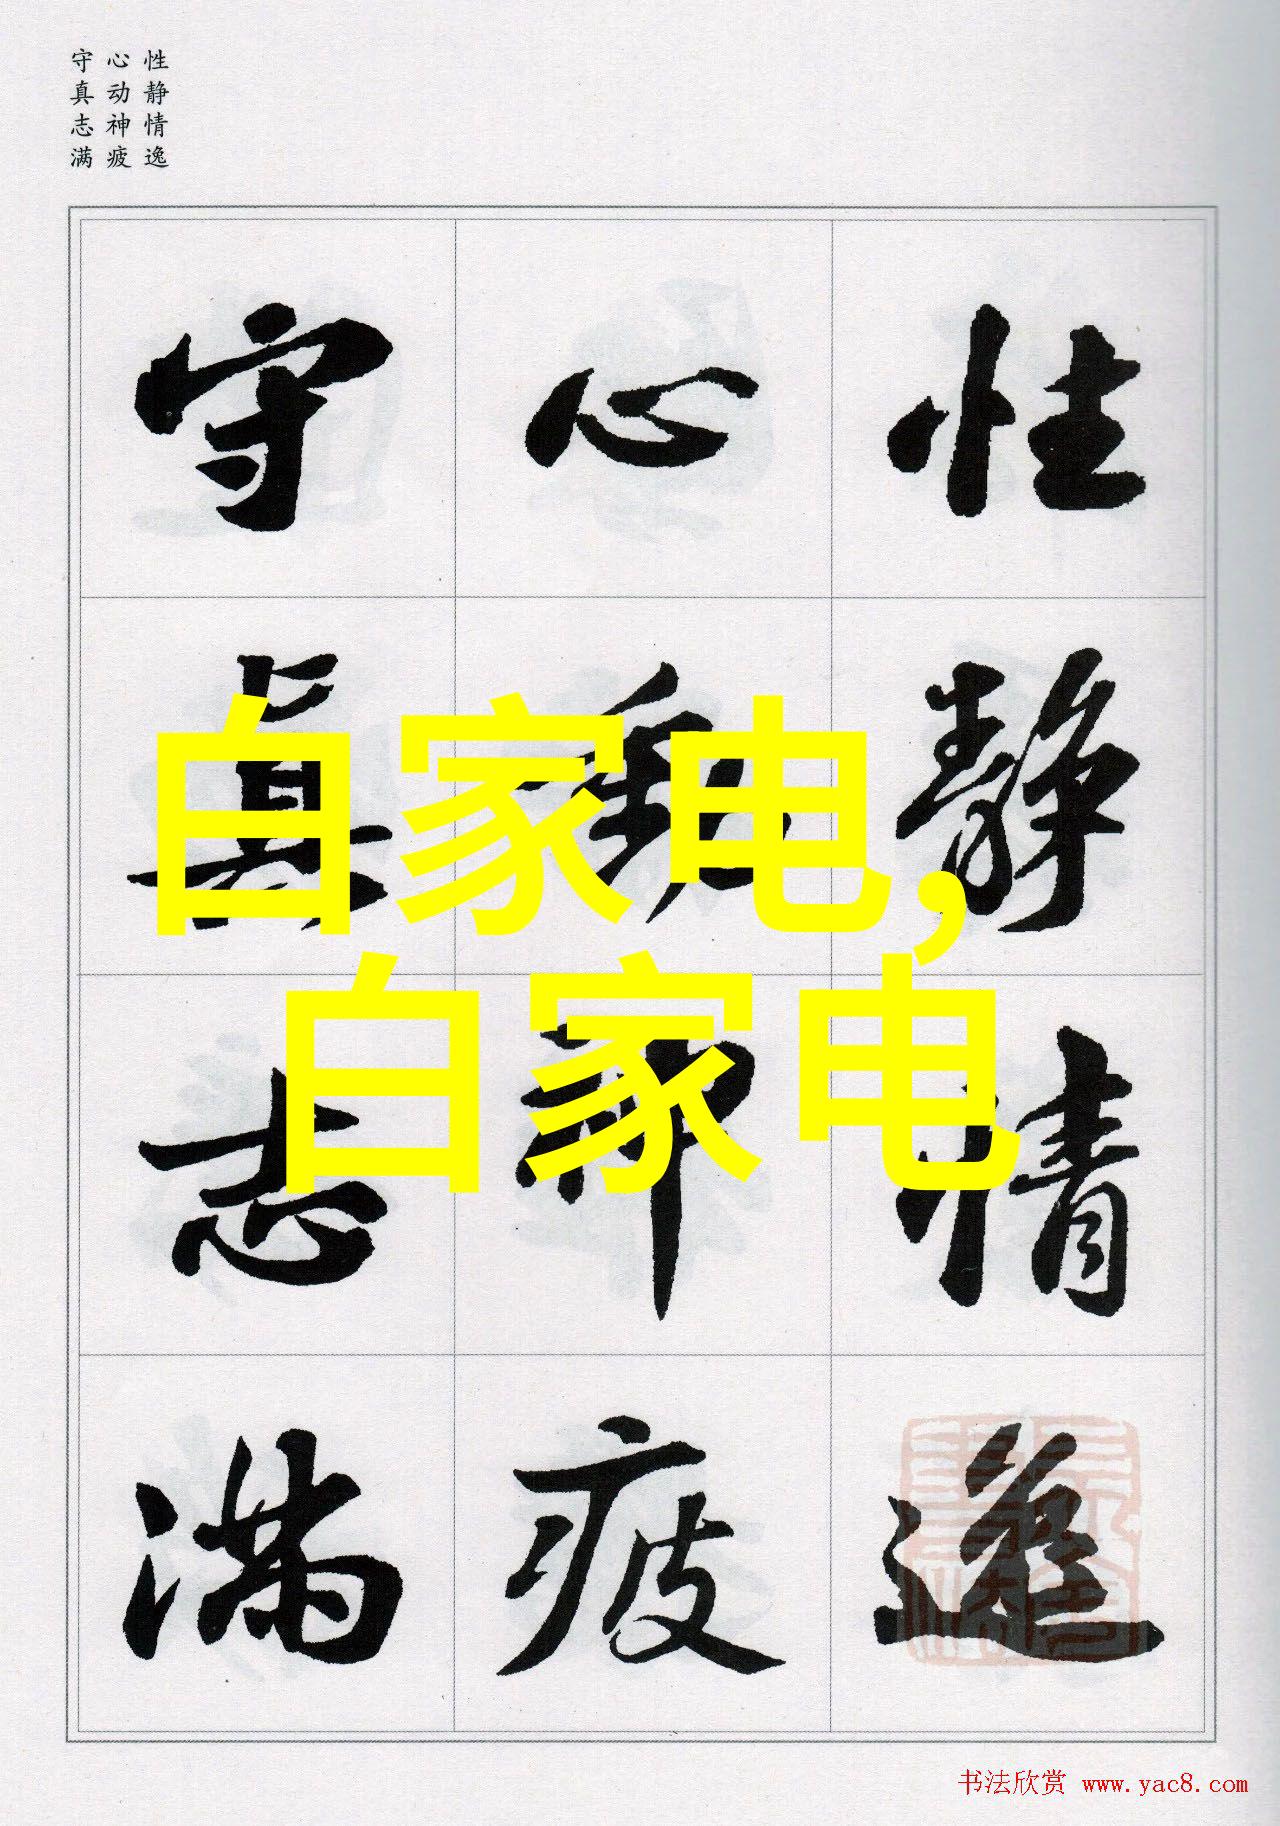 性静情逸
心动神疲
守真志满
性静情逸
心動神疲
守真志滿
白家电,
白家电
书法欣赏 www.yac8.com